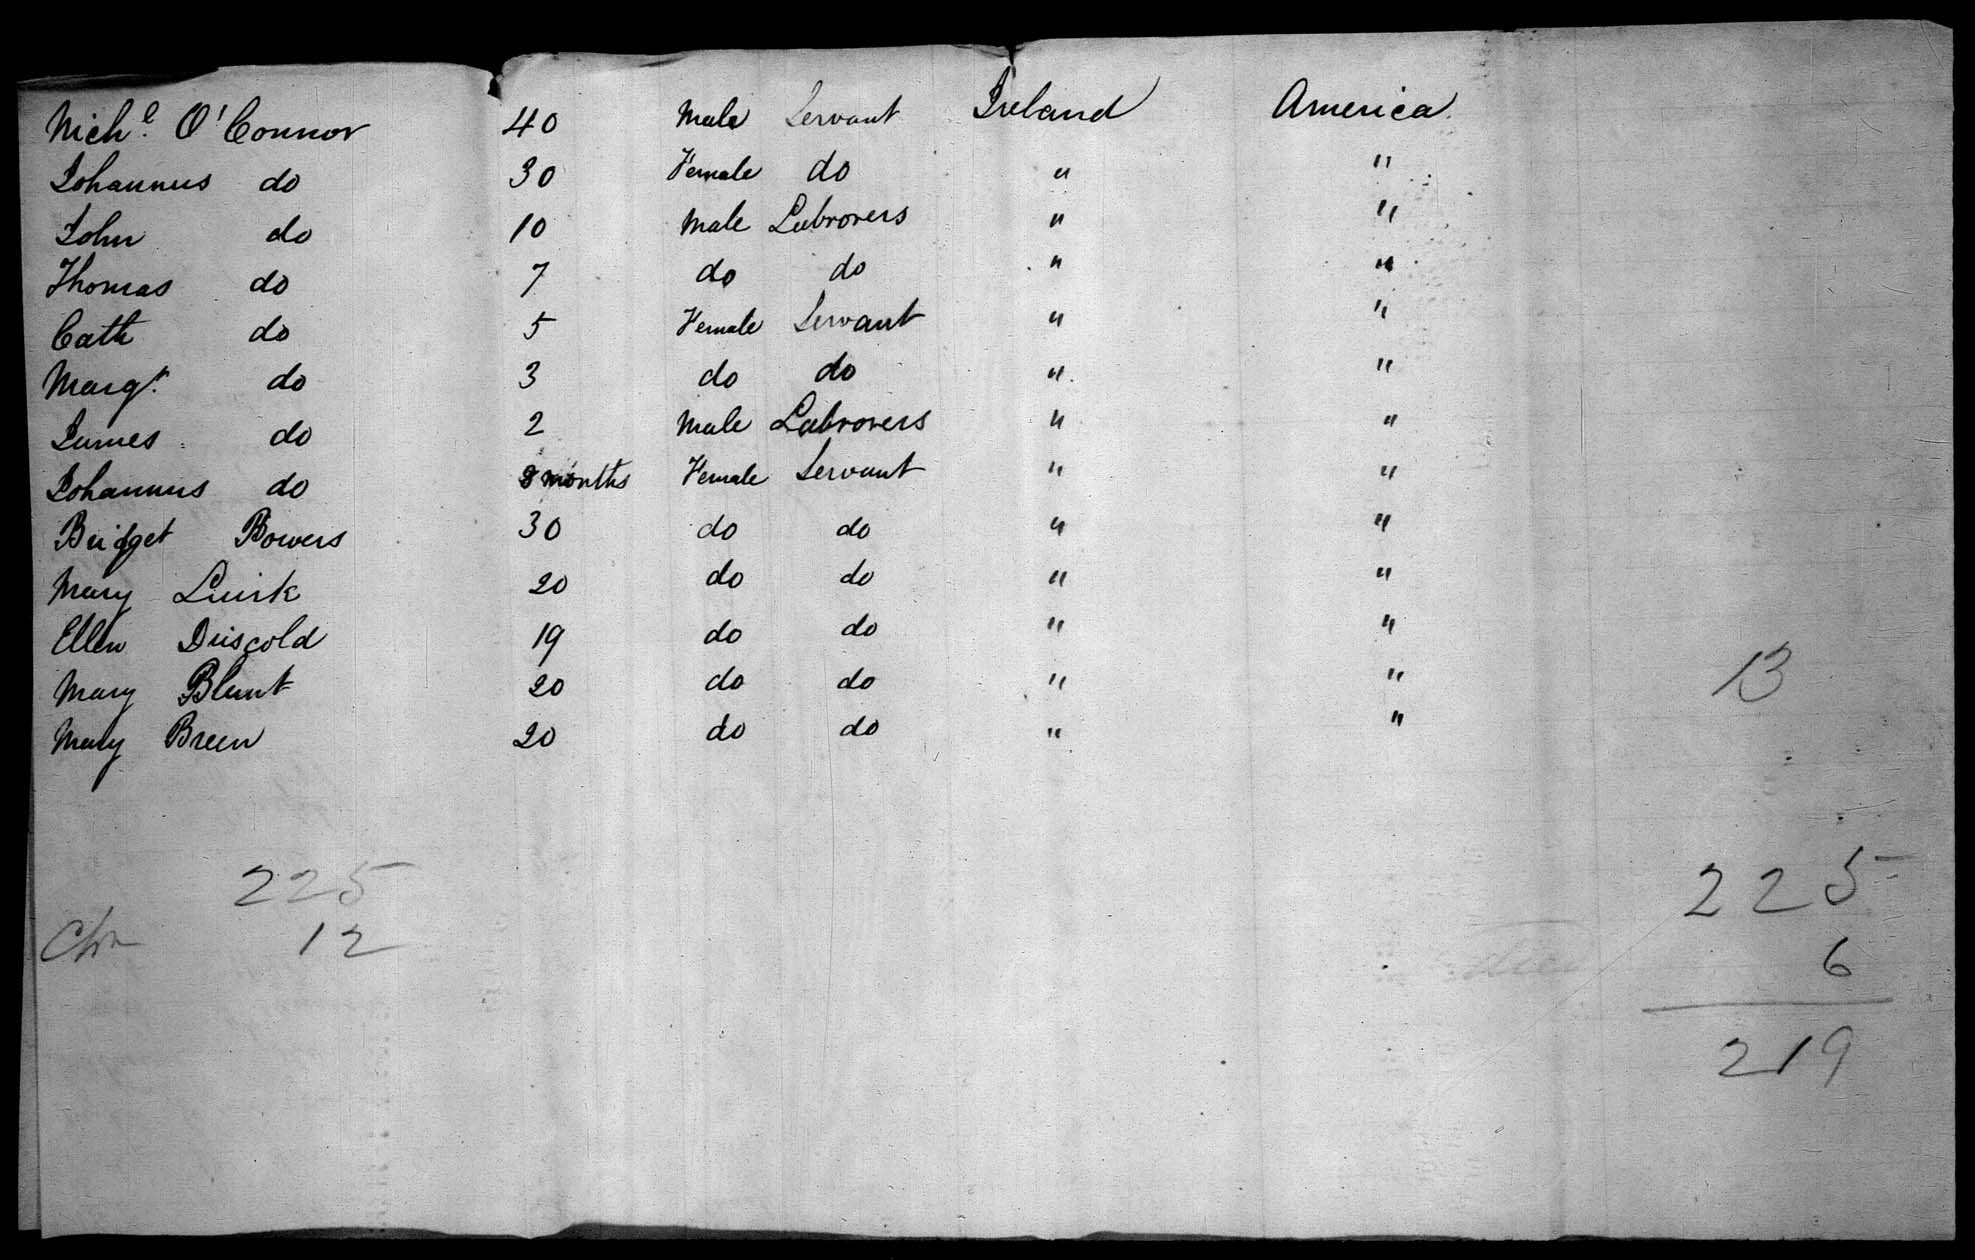 Mich.l O'Connor 40 Male Servant Ireland America
Johannus do 30 Female do " "
John do 10 Male Labrorers " "
Thomas do 7 do do " "
Cath do 5 Female Servant " "
Margt. do 3 do do " "
James do 2 Male Labrorers " "
Johannus do 8 months Female Servant " "
Bridget Bowers 30 do do " "
Mary Quirk 20 do do " "
Ellen Driscold 19 do do " "
Mary Blunt 20 do do " "
Mary Breen 20 do do " "
13
225
12
225
died 6
219